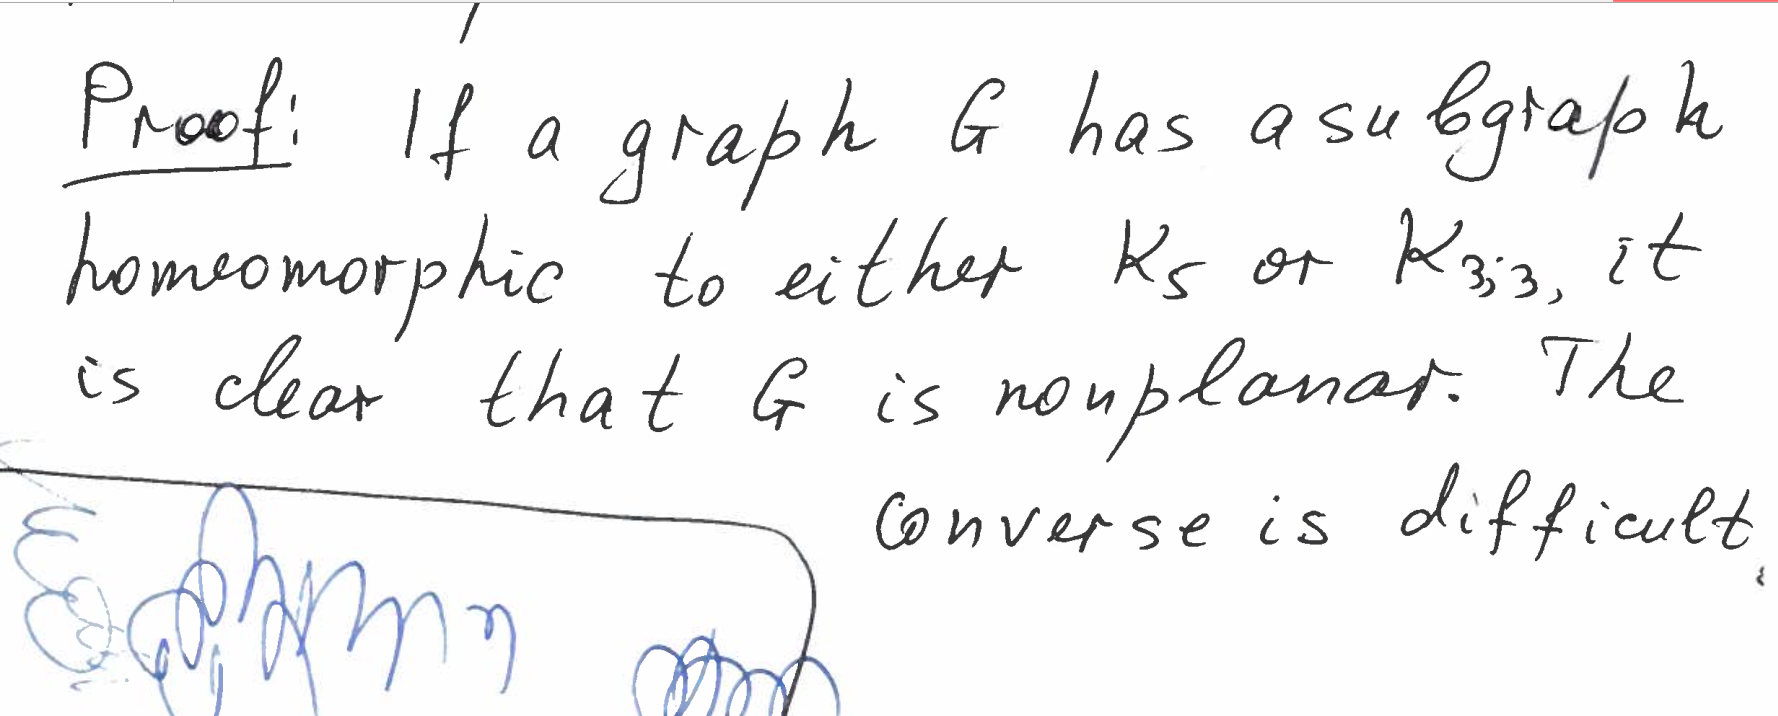 Proof: If a graph G has a subgraph
homeomorphic to either K5 or K3,3, it
is clear that G is nonplanar. The
converse is difficult.